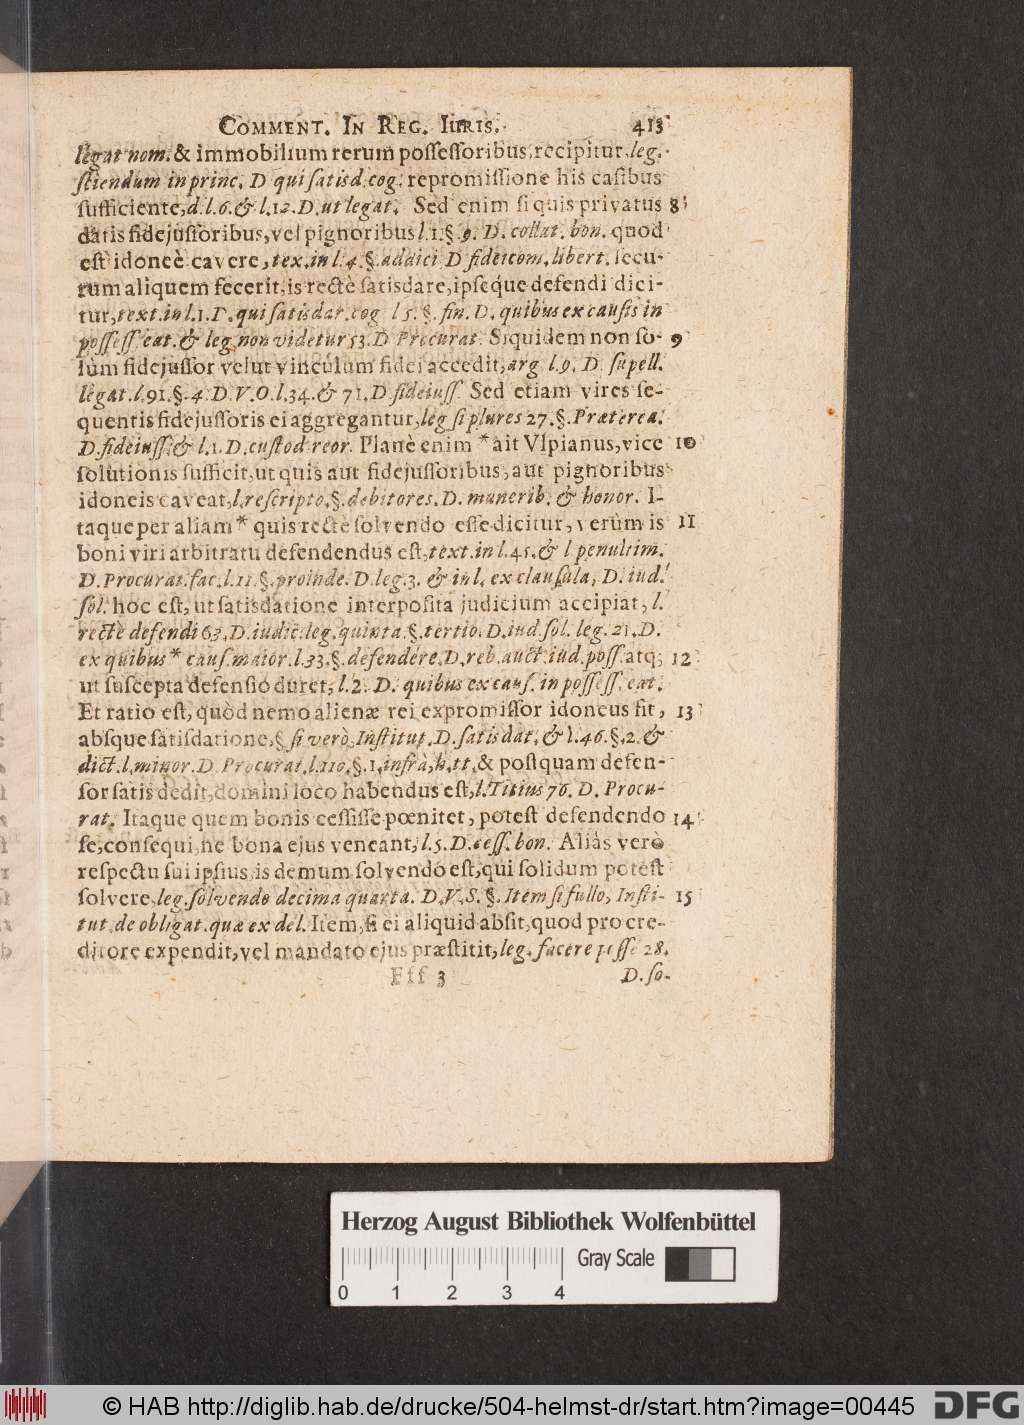 COMMENT. IN REG. IURIS. 413
legat nom. & immobilium rerum possessoribus, recipitur, leg.
sciendum in princ. D qui satisd. cog. repromissione his casibus
sufficiente, d. l. 6. & l. 12. D. ut legat. Sed enim si quis privatus 8
datis fidejussoribus, vel pignoribus l. 1. §. 9. D. collat. bon. quod
est idoneè cavere, tex. in l. 4. §. addici D fideicom. libert. secu-
rum aliquem fecerit, is rectè satisdare, ipseque defendi dici-
tur, text. in l. 1. D. qui satisdar. cog l 5. §. fin. D. quibus ex causis in
possess. eat. & leg. non videtur 53. D Procurat. Siquidem non so- 9
lùm fidejussor velut vinculum fidei accedit, arg l. 9. D. supell.
legat. l. 91. §. 4. D. V. O. l. 34. & 71. D. fideiuss. Sed etiam vires se-
quentis fidejussoris ei aggregantur, leg si plures 27. §. Præterea.
D. fideiuss. & l. 1. D. custod reor. Planè enim * ait Vlpianus, vice 10
solutionis sufficit, ut quis aut fidejussoribus, aut pignoribus
idoneis caveat, l. rescripto. §. debitores. D. munerib. & honor. I-
taque per aliam * quis rectè solvendo esse dicitur, verùm is 11
boni viri arbitratu defendendus est, text. in l. 45. & l penultim.
D. Procurat. fac. l. 11. §. proinde. D. leg. 3. & in l. ex clausula, D. iud.
sol. hoc est, ut satisdatione interposita judicium accipiat, l.
rectè defendi 63. D. iudic. leg. quinta. §. tertio. D. iud sol. leg. 21. D.
ex quibus * caus. maior. l. 33. §. defendere. D. reb. auct. iud. poss. atq; 12
ut suscepta defensio duret, l. 2. D. quibus ex caus. in possess. eat.
Et ratio est, quòd nemo alienæ rei expromissor idoneus sit, 13
absque satisdatione, § si verò, Institut. D. satisdat. & l. 46. §. 2. &
dict. l. minor. D. Procurat. l. 110. §. 1. infrà, h. tt. & postquam defen-
sor satis dedit, domini loco habendus est, l. Titius 76. D. Procu-
rat. Itaque quem bonis cessisse pœnitet, potest defendendo 14
se, consequi, ne bona ejus veneant, l. 5. D. cess. bon. Aliàs verò
respectu sui ipsius, is demum solvendo est, qui solidum potest
solvere, leg. solvendo decima quarta. D. V. S. §. Item si fullo, Insti- 15
tut. de obligat. quæ ex del. Item, si ei aliquid absit, quod pro cre-
ditore expendit, vel mandato ejus præstitit, leg. facere posse 28.
Fff 3 D. so-
Herzog August Bibliothek Wolfenbüttel
Gray Scale
0 1 2 3 4
© HAB http://diglib.hab.de/drucke/504-helmst-dr/start.htm?image=00445
DFG